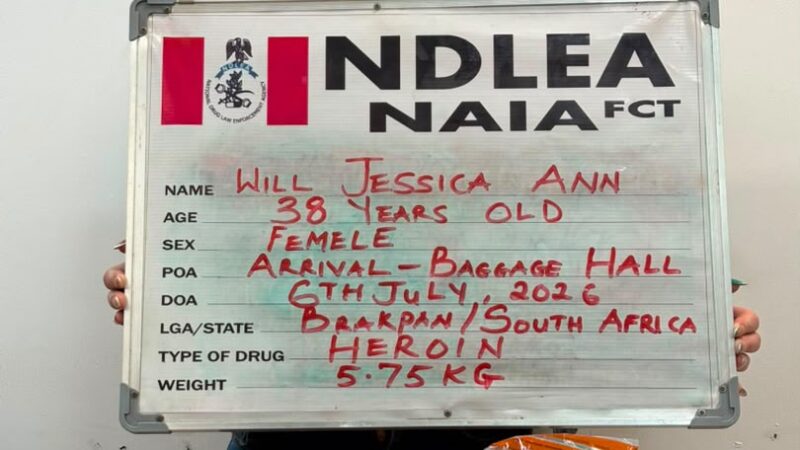 NDLEA
NAIA FCT
NDLEA
NATIONAL DRUG LAW ENFORCEMENT AGENCY
NAME WILL JESSICA ANN
AGE 38 YEARS OLD
SEX FEMELE
POA ARRIVAL - BAGGAGE HALL
DOA 6TH JULY, 2026
LGA/STATE BRAKPAN/SOUTH AFRICA
TYPE OF DRUG HEROIN
WEIGHT 5.75KG